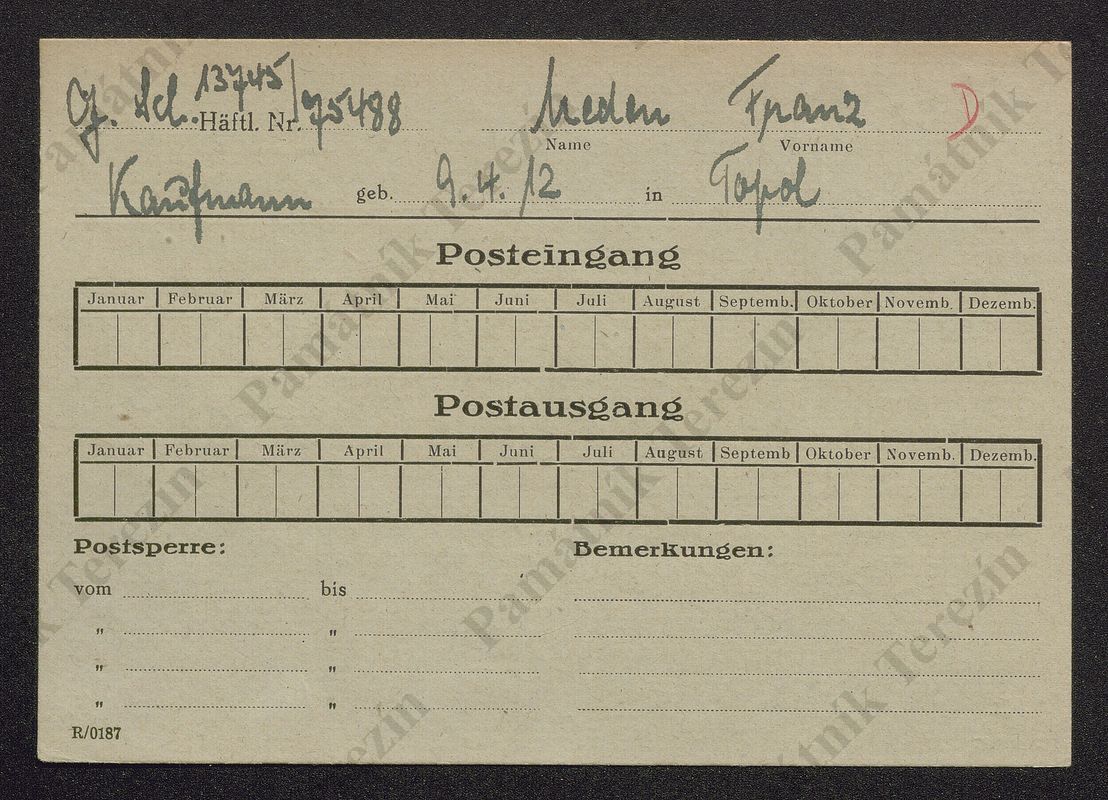 J. Sch. 13745/75488 Meden Franz D
Häftl. Nr. Name Vorname
Kaufmann geb. 9.4./12 in Topol
Posteingang
Januar Februar März April Mai Juni Juli August Septemb. Oktober Novemb. Dezemb.
Postausgang
Januar Februar März April Mai Juni Juli August Septemb Oktober Novemb. Dezemb.
Postsperre: Bemerkungen:
vom bis
" "
" "
" "
R/0187
Památník Terezín